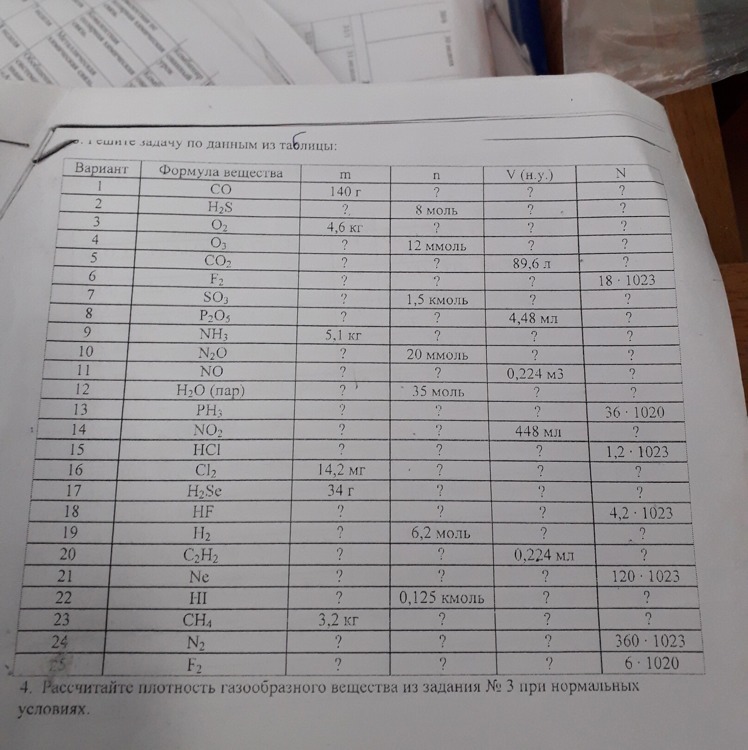 Решите задачу по данным из таблицы:
Вариант Формула вещества m n V (н.у.) N
1 CO 140 г ? ? ?
2 H₂S ? 8 моль ? ?
3 O₂ 4,6 кг ? ? ?
4 O₃ ? 12 ммоль ? ?
5 CO₂ ? ? 89,6 л ?
6 F₂ ? ? ? 18 · 1023
7 SO₃ ? 1,5 кмоль ? ?
8 P₂O₅ ? ? 4,48 мл ?
9 NH₃ 5,1 кг ? ? ?
10 N₂O ? 20 ммоль ? ?
11 NO ? ? 0,224 м3 ?
12 H₂O (пар) ? 35 моль ? ?
13 PH₃ ? ? ? 36 · 1020
14 NO₂ ? ? 448 мл ?
15 HCl ? ? ? 1,2 · 1023
16 Cl₂ 14,2 мг ? ? ?
17 H₂Se 34 г ? ? ?
18 HF ? ? ? 4,2 · 1023
19 H₂ ? 6,2 моль ? ?
20 C₂H₂ ? ? 0,224 мл ?
21 Ne ? ? ? 120 · 1023
22 HI ? 0,125 кмоль ? ?
23 CH₄ 3,2 кг ? ? ?
24 N₂ ? ? ? 360 · 1023
25 F₂ ? ? ? 6 · 1020
4. Рассчитайте плотность газообразного вещества из задания № 3 при нормальных
условиях.